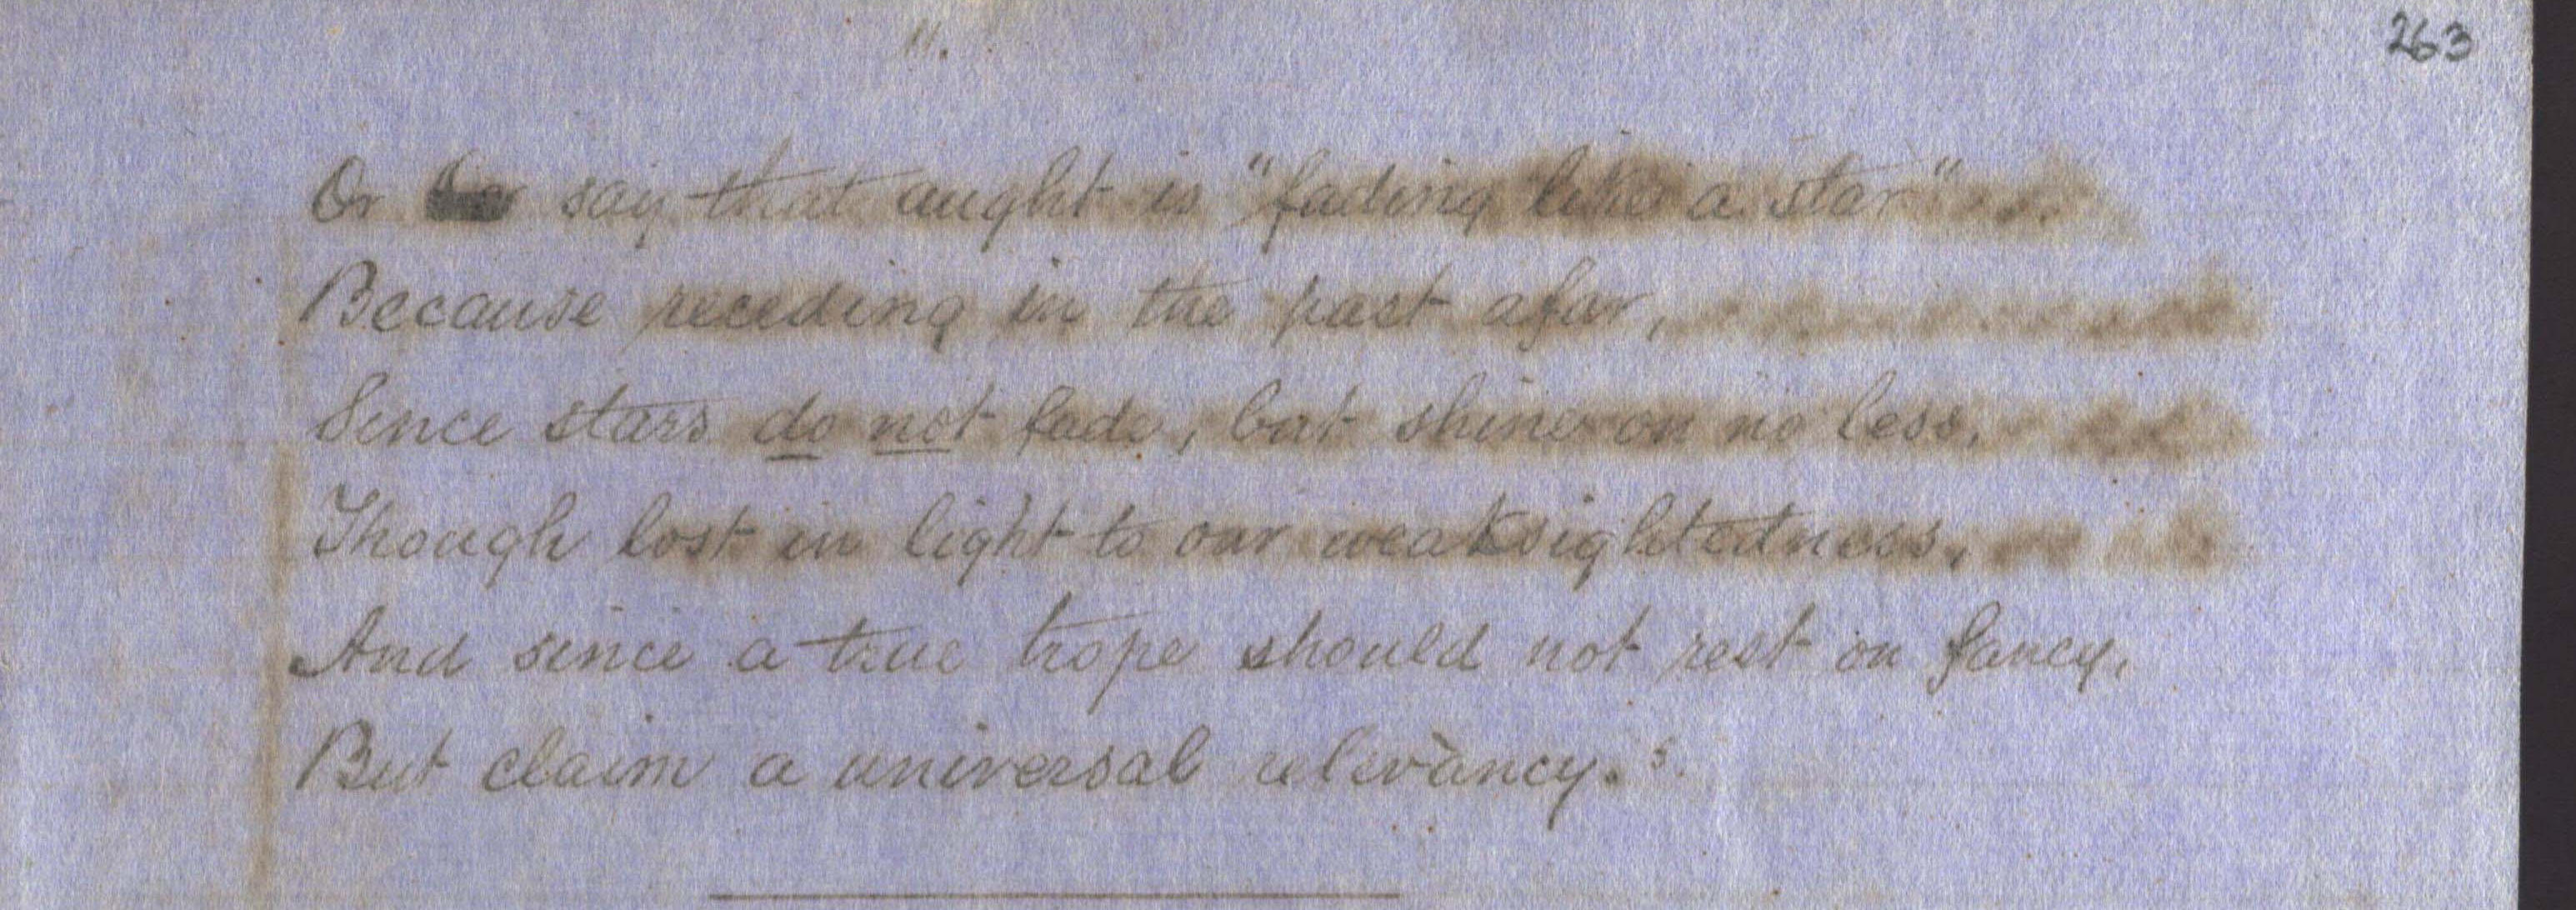 11.
263
Or say that aught is "fading like a star"
Because receding in the past afar,
Since stars do not fade, but shine on no less,
Though lost in light to our weaksightedness,
And since a true trope should not rest on fancy,
But claim a universal relevancy.